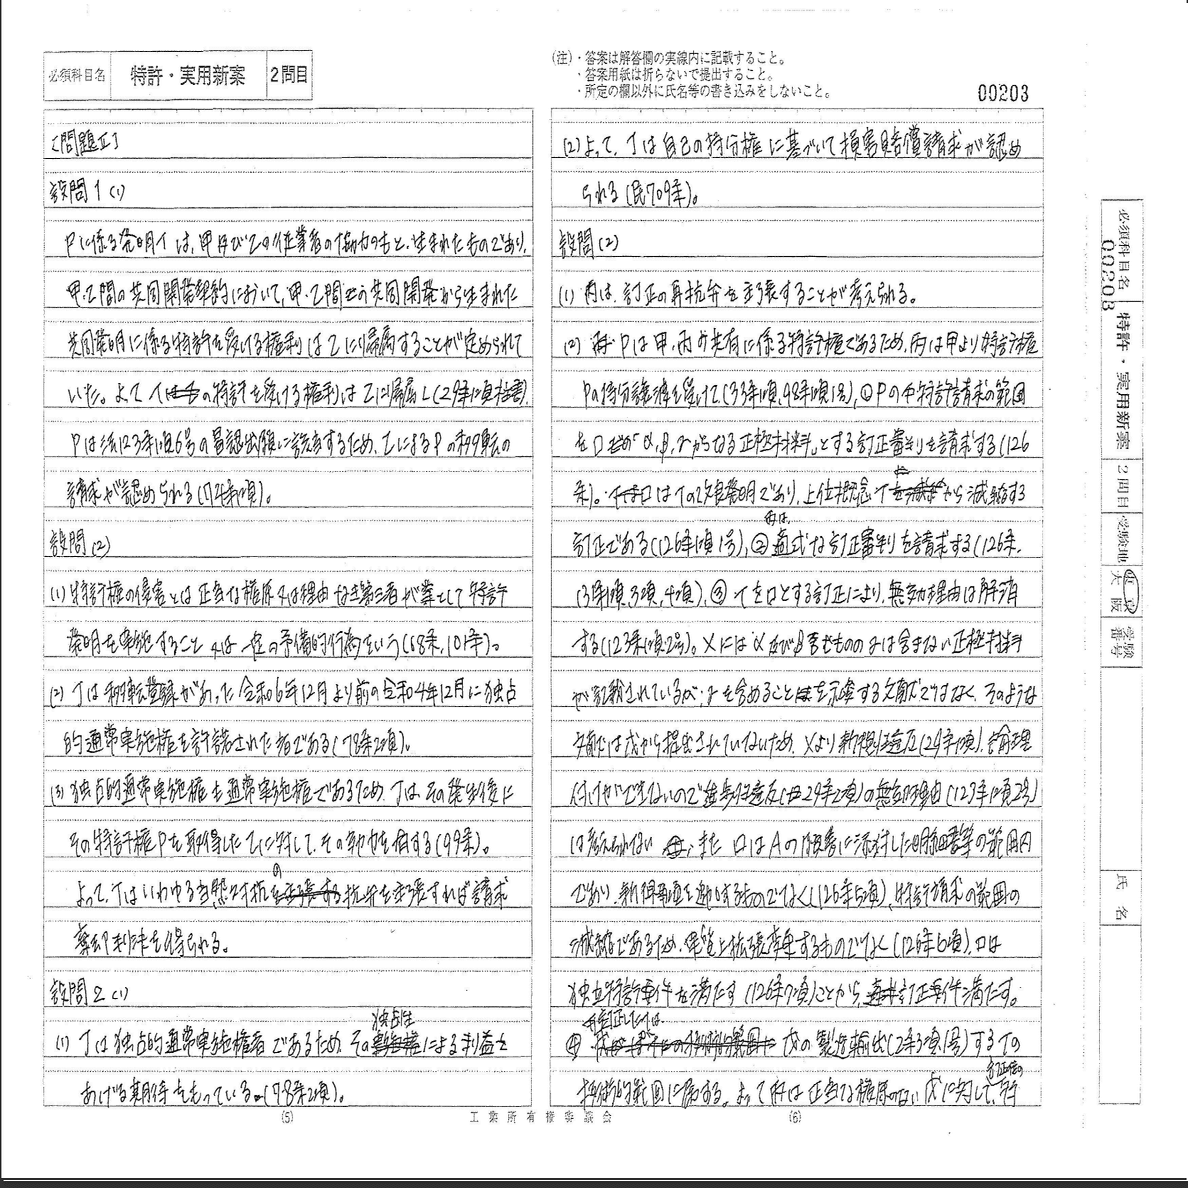 必須科目名 特許・実用新案 2問目
(注)・答案は解答欄の実線内に記載すること。
・答案用紙は折らないで提出すること。
・所定の欄以外に氏名等の書き込みをしないこと。
00203
[問題Ⅱ]
設問1(1)
Pに係る発明イは、甲及び乙の従業者の協力のもと、生まれたものであり、
甲・乙間の共同開発契約において、甲・乙間の共同開発から生まれた
共同発明に係る特許を受ける権利は乙に帰属することが定められて
いた。よってイの特許を受ける権利は乙に帰属し(29条1項柱書)、
Pは法123条1項6号の冒認出願に該当するため、乙によるPの移転の
請求が認められる(74条1項)。
設問(2)
(1)特許権の侵害とは正当な権原又は理由なき第三者が業として特許
発明を実施すること又は一定の予備的行為をいう(68条,101条)。
(2)丁は移転登録があった令和6年12月より前の令和4年12月に独占
的通常実施権を許諾された者である(78条2項)。
(3)独占的通常実施権も通常実施権であるため、丁は、その発生後に
その特許権Pを取得した乙に対して、その効力を有する(99条)。
よって、丁はいわゆる当然対抗の抗弁を主張すれば請求
棄却判決を得られる。
設問2(1)
(1)丁は独占的通常実施権者であるため、その独占性による利益を
あげる期待をもっている。(78条2項)。
(5)
(2)よって、丁は自己の持分権に基づいて損害賠償請求が認め
られる(民709条)。
設問(2)
(1)丙は、訂正の再抗弁を主張することが考えられる。
(2) Pは甲、丙の共有に係る特許権であるため、丙は甲より特許権
Pの持分譲渡を受けて(33条1項,98条1項1号)、①Pの特許請求の範囲
をロ「α,β,γからなる正極材料」とする訂正審判を請求する(126
条)。ロはイの改良発明であり、上位概念イから減縮する
訂正である(126条1項1号)、②丙は、適式な訂正審判を請求する(126条、
131条1項,3項,4項)、③イをロとする訂正により、無効理由は解消
する(123条1項2号)。Xにはα及びβ含むもののγは含まない正極材料
が記載されているが、γを含めることを示唆する文献ではなく、そのような
文献では戊から提出されていないため、Xより新規性違反(29条1項)、論理
付けができないので進歩性違反(29条2項)の無効理由(123条1項2号)
は考えられない また ロはAの願書に添付した明細書等の範囲内
であり、新規事項を追加するものでなく(126条5項)、特許請求の範囲の
減縮であるため、実質上拡張変更するものでなく(126条6項)、ロは
独立特許要件を満たす(126条7項)ことから、訂正要件満たす。
④ 戊の製造輸出(2条3項1号)する
技術的範囲に属する。よって丙は正当な権原のない戊に対して、
(6)
工業所有権審議会
必須科目名 特許・実用新案 2問目 受験地 大阪 受験番号 氏名
00203